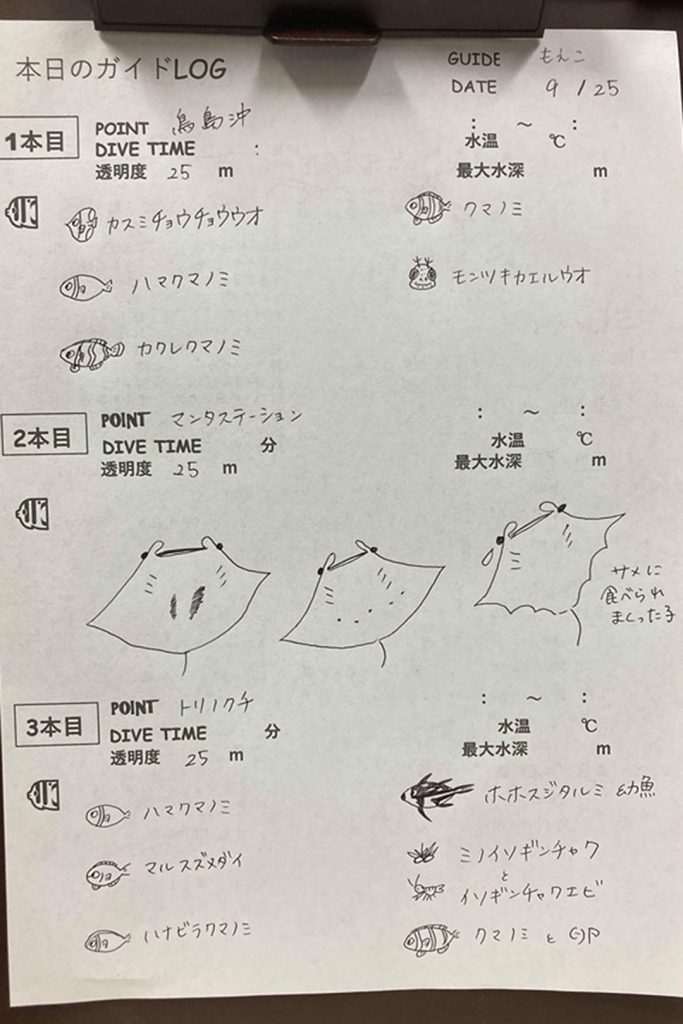 本日のガイドLOG
GUIDE もえこ
DATE 9 / 25
1本目
POINT 鳥島沖
DIVE TIME :
透明度 25 m
: ~ :
水温 ℃
最大水深 m
カスミチョウチョウウオ
ハマクマノミ
カクレクマノミ
クマノミ
モンツキカエルウオ
2本目
POINT マンタステーション
DIVE TIME 分
透明度 25 m
: ~ :
水温 ℃
最大水深 m
サメに
食べられ
まくった子
3本目
POINT トリノクチ
DIVE TIME 分
透明度 25 m
: ~ :
水温 ℃
最大水深 m
ハマクマノミ
マルスズメダイ
ハナビラクマノミ
ホホスジタルミ 幼魚
ミノイソギンチャク
と
イソギンチャクエビ
クマノミ と